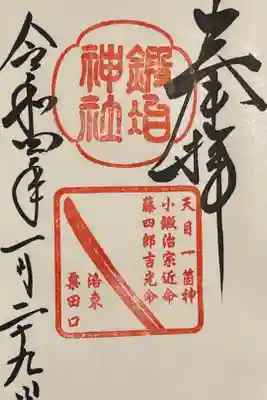 奉拝
鍛冶
神社
天目一箇神
小鍛治宗近命
藤四郎吉光命
洛東
粟田口
令和四年一月二十九日